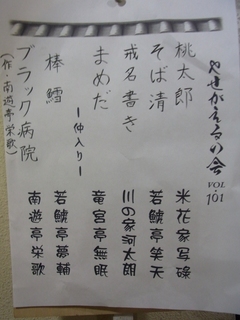 やせがえるの会 VOL.101
桃太郎 米花家写碌
そば清 若鯱亭笑天
戒名書き 川の家河太郎
まめだ 竜宮亭無眠
ー仲入りー
棒鱈 若鯱亭夢輔
ブラック病院 南遊亭栄歌
(作・南遊亭栄歌)